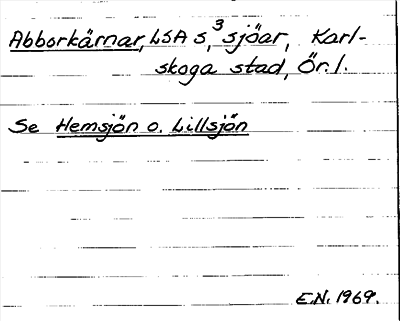 Abborkärnar, LSA S, 3 sjöar, Karl-
skoga stad, Ör. l.
Se Hemsjön o. Lillsjön
E.N. 1969.